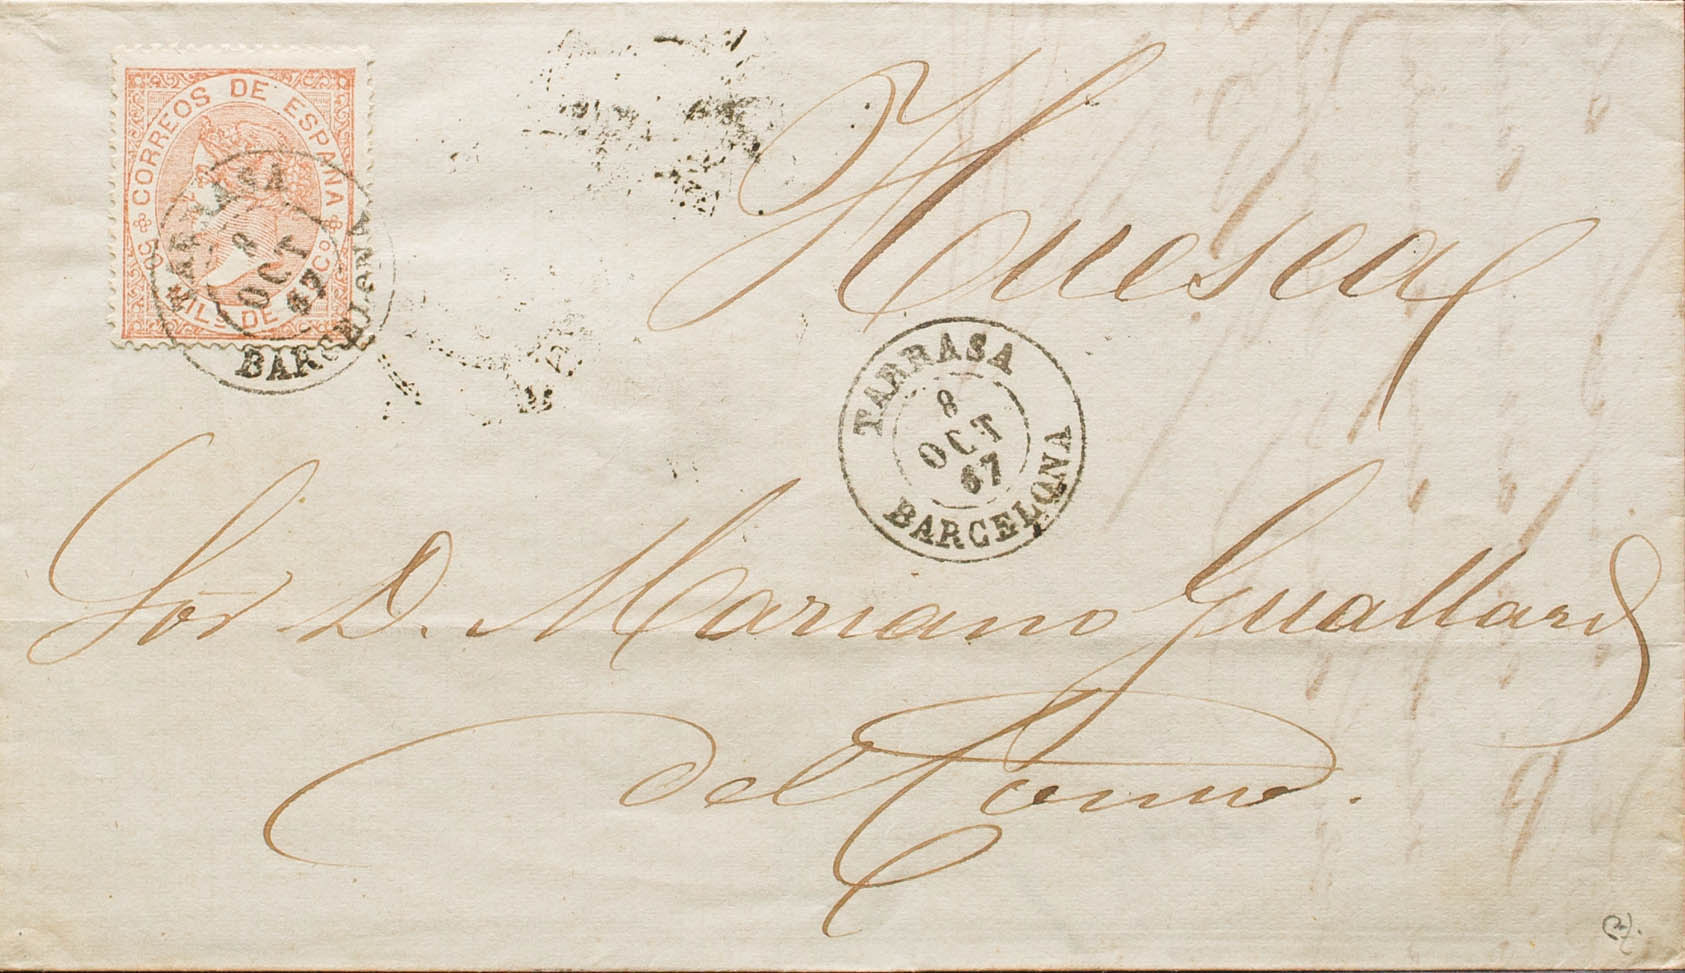 CORREOS DE ESPAÑA
50 MILs DE Eo
TARRASA
8
OCT
67
BARCELONA
Huesca
TARRASA
8
OCT
67
BARCELONA
Sor D. Mariano Guallard
del Comco.